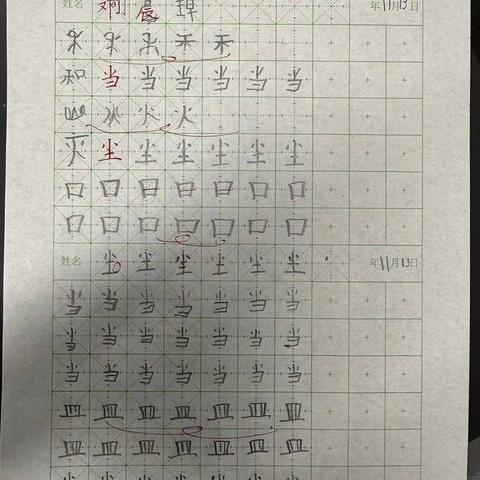 姓名 刘晨 年11月13日
禾 禾 禾
和 当 当 当 当 当 当
火 火 火
灭 尘 尘 尘 尘 尘 尘
口 口 口 口 口 口 口
口 口 口 口 口 口 口
姓名 尘 尘 尘 尘 尘 尘 年11月13日
当 当 当 当 当 当 当
当 当 当 当 当 当 当
当 当 当 当 当 当 当
皿 皿 皿 皿 皿 皿 皿
皿 皿 皿 皿 皿 皿 皿